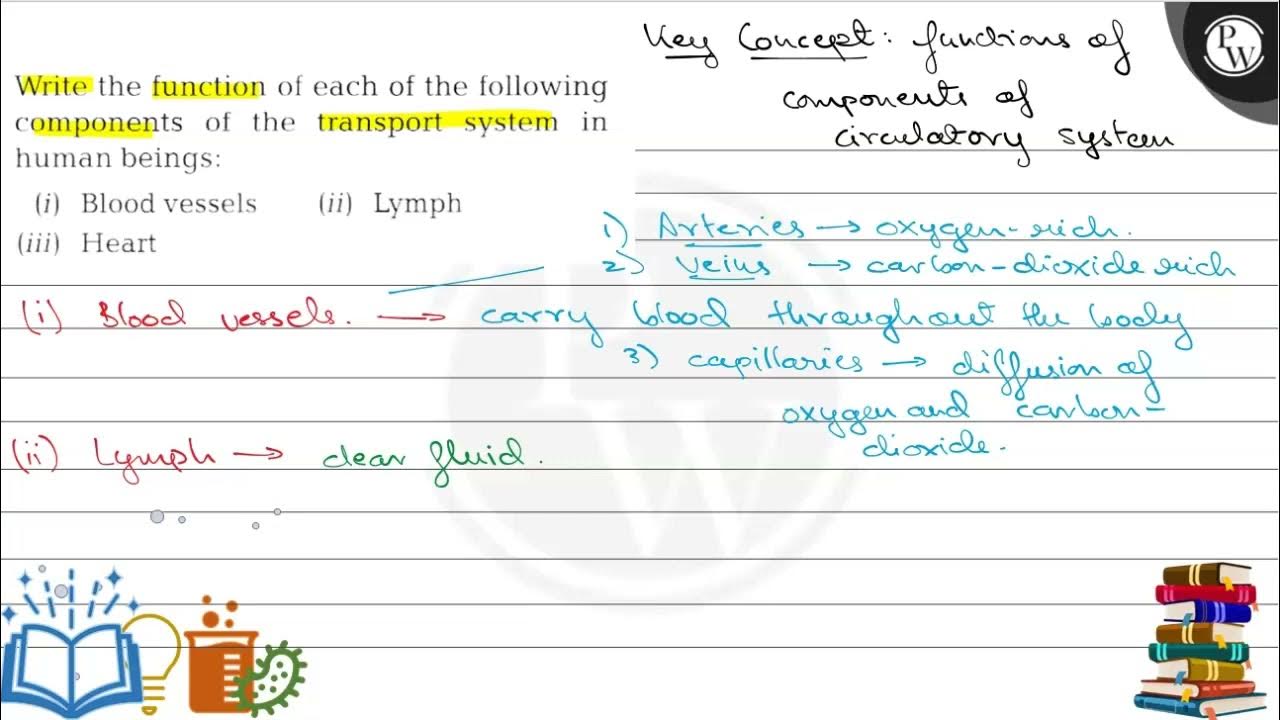 Key Concept: functions of
components of
circulatory system
PW
Write the function of each of the following
components of the transport system in
human beings:
(i) Blood vessels (ii) Lymph
(iii) Heart
1) Arteries → oxygen-rich.
2) Veins → carbon-dioxide rich
(i) Blood vessels. → carry blood throughout the body
3) capillaries → diffusion of
oxygen and carbon-
dioxide.
(ii) Lymph → clear fluid.
PW